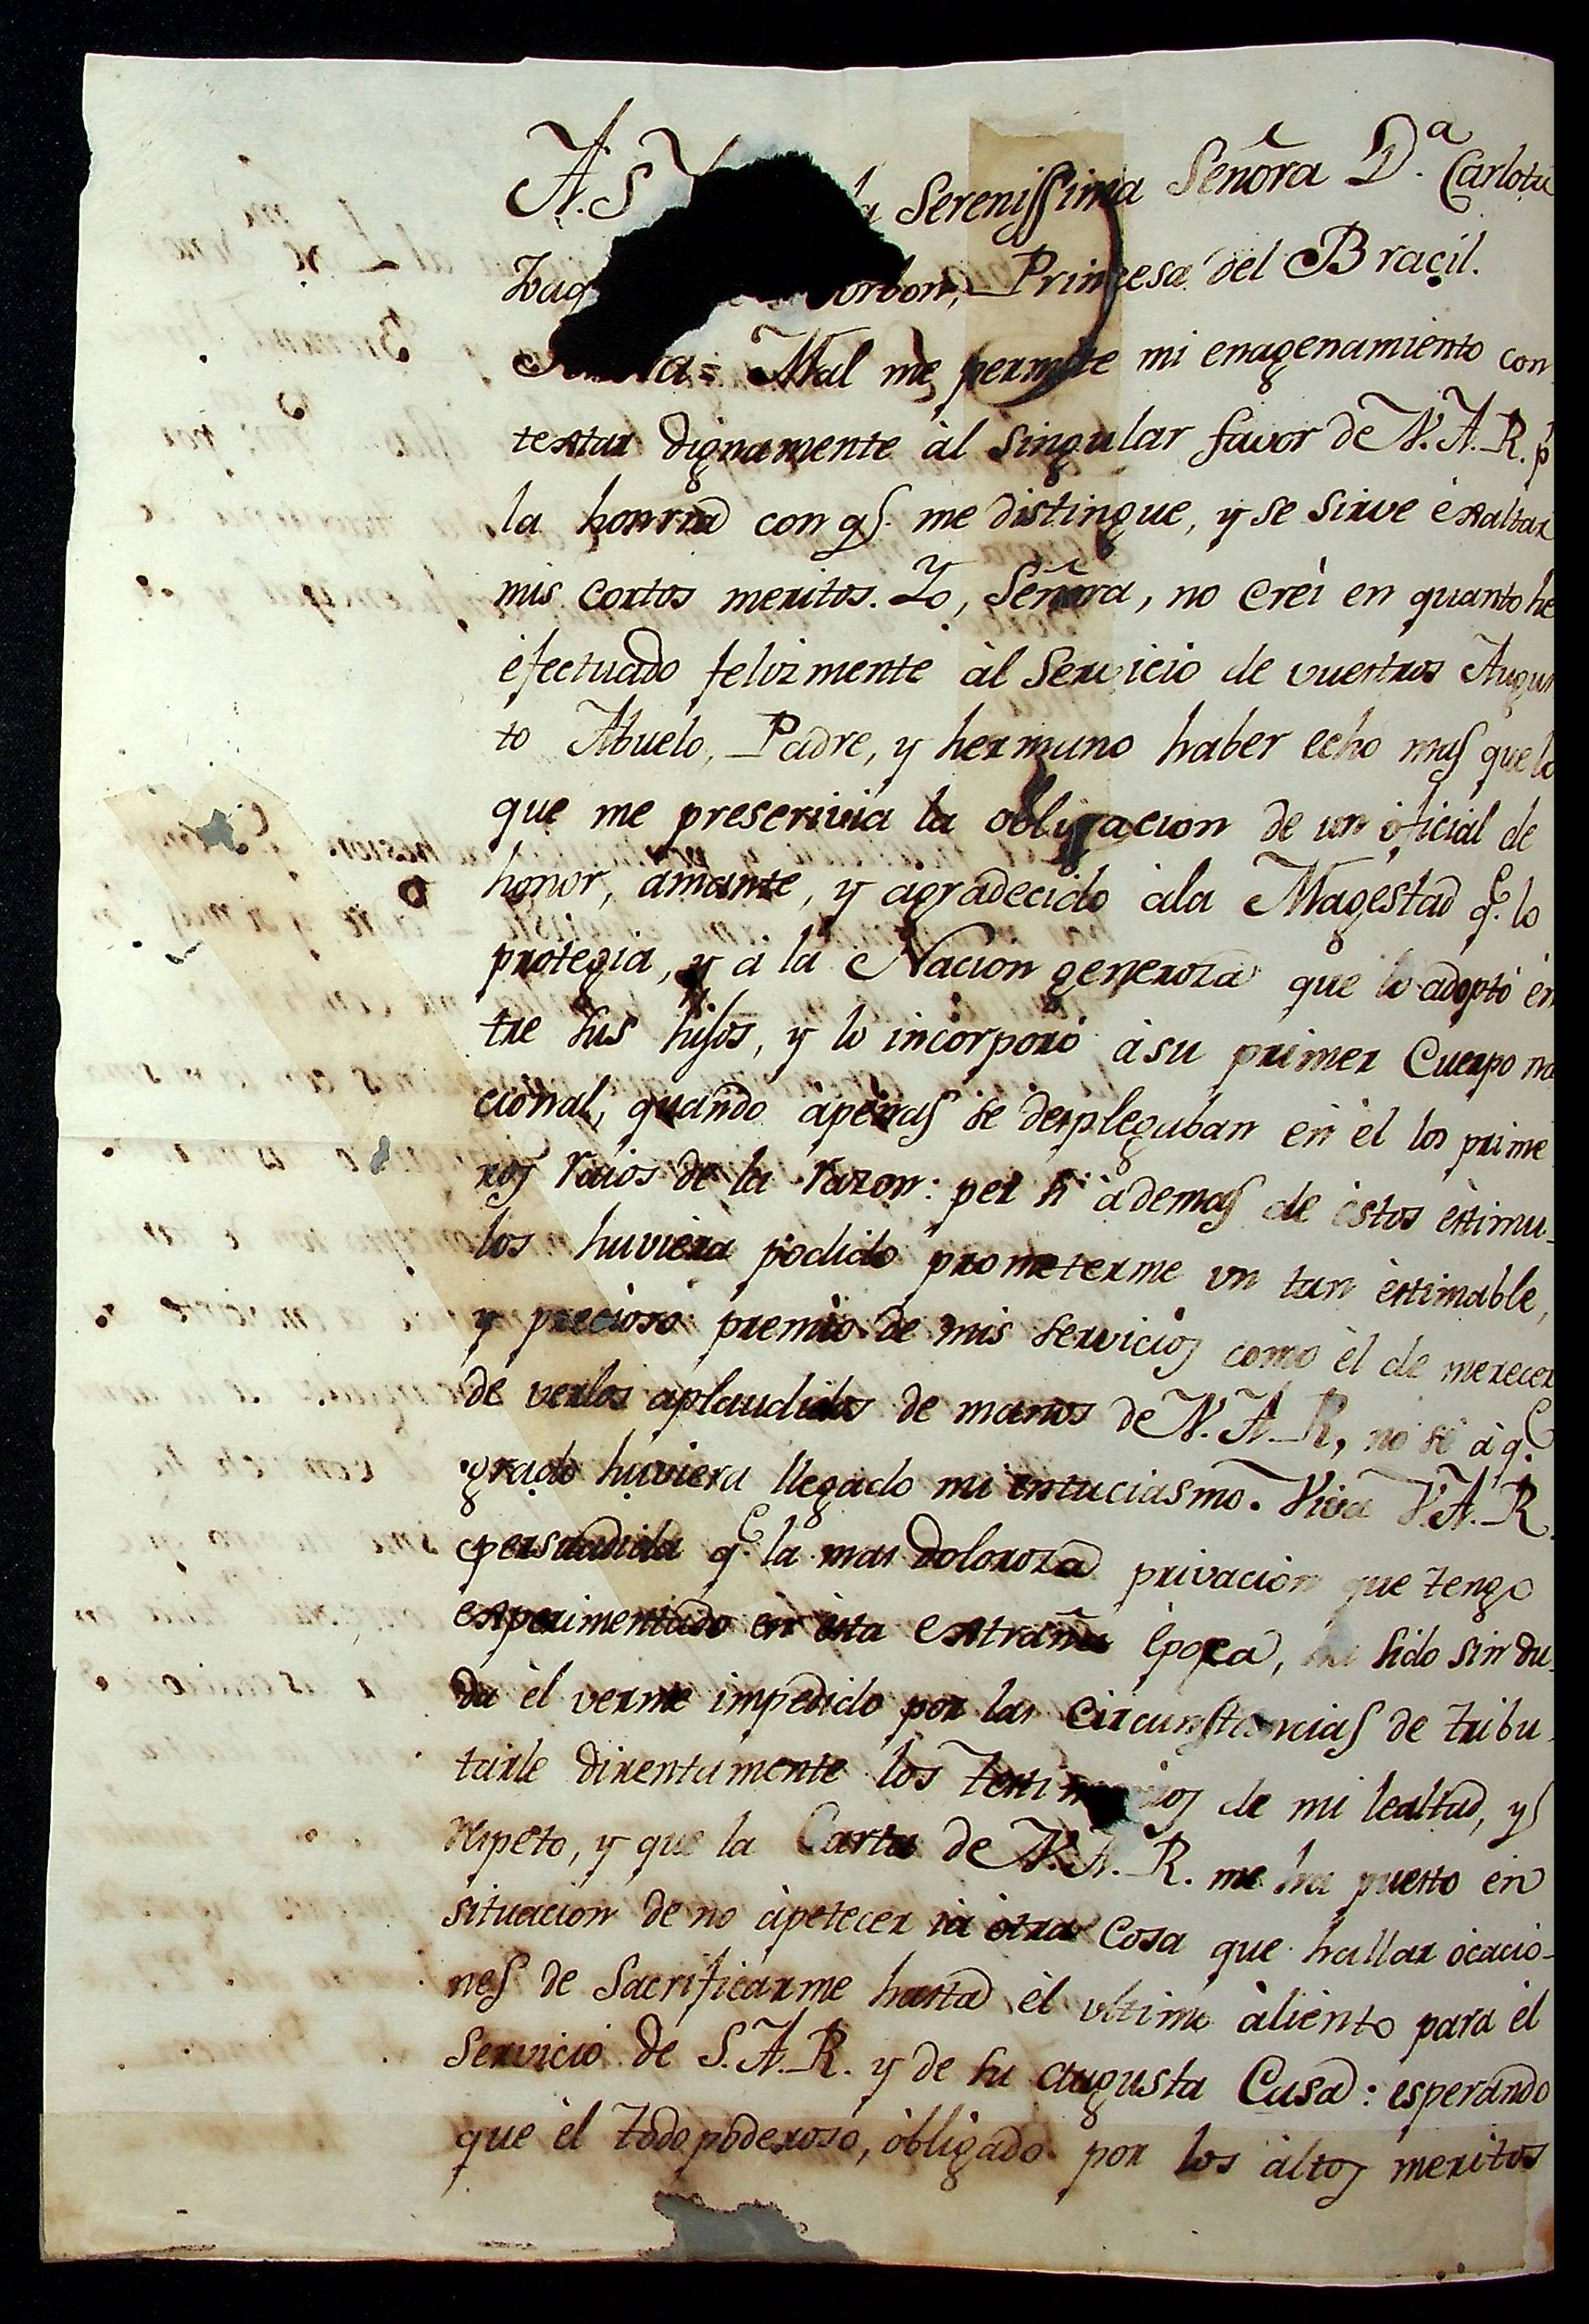 A. S la Serenissima Señora D.ª Carlota
Joaq orbon, Princesa del Braçil.
Señora = Mal me permite mi enagenamiento con
textar dignamente àl singular favor de V. A. R. pʳ
la honrra con q.ᵉ me distingue, y se sirve èxaltar
mis cortos meritos. Yo, Señora, no creì en quanto he
èfectuado felizmente àl Servicio de vuestros Augus
to Abuelo, Padre, y hermano haber echo mas que lo
que me prescrivia la obligacion de un oficial de
honor, amante, y agradecido àla Magestad q.ᵉ lo
protegia, y à la Nacion generoza que lo adoptò èn
tre sus hijos, y lo incorporò àsu primer Cuerpo na
cional, quando àpenas se desplegaban èn èl los prime
ros raios de la razon: per si àdemas de èstos èstimu_
los huviera podido prometerme vn tan èstimable,
y precioso premio de mis servicios como èl de merecer
de verlos aplaudidos de manos de V. A. R, no sé à q.ᵉ
grado huviera llegado mi entuciasmo. Viva V. A. R.
persuadida q.ᵉ la mas doloroza privacion que tengo
experimentado èn èsta extraña època, ha sido sin du_
da èl verme impedido por las circunstancias de tribu_
tarle direntamente los Testimonios de mi lealtad, y
respeto, y que la Carta de V. A. R. me ha puesto èn
situacion de no àpetecer ià òtra Cosa que hallar òcacio_
nes de Sacrificarme hasta èl vltimo àliento para èl
Servicio de S. A. R. y de su augusta Casa: esperando
que èl todo poderoso, òbligado por los àltos meritos